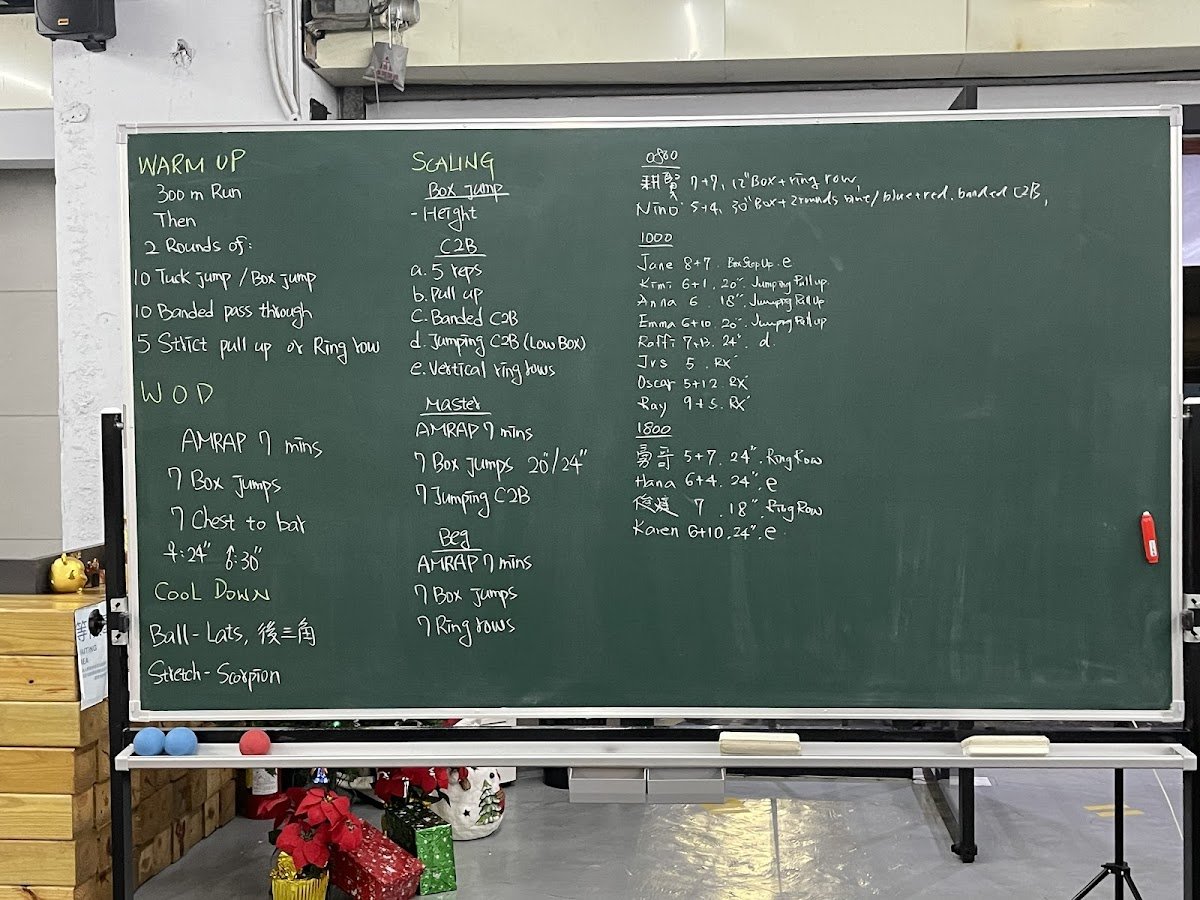 WARM UP
300 m Run
Then
2 Rounds of:
10 Tuck jump / Box jump
10 Banded pass through
5 Strict pull up or Ring row
WOD
AMRAP 7 mins
7 Box jumps
7 Chest to bar
♀:24" ♂:30"
COOL DOWN
Ball - Lats, 後三角
Stretch - Scorpion
SCALING
Box jump
- Height
C2B
a. 5 reps
b. Pull up
c. Banded C2B
d. Jumping C2B (Low Box)
e. Vertical ring rows
Master
AMRAP 7 mins
7 Box jumps 20"/24"
7 Jumping C2B
Beg
AMRAP 7 mins
7 Box jumps
7 Ring rows
7+7, 12" Box + ring row
Nino 5+4, 30" Box + 2 rounds / blue + red. banded C2B,
1000
Jane 8+7. Box Step Up. e
Kimi 6+1. 20". Jumping Pull up
Anna 6. 18". Jumping Pull up
Emma 6+10. 20". Jumping Pull up
Raffi 24". d.
5. RX
Oscar 5+12. RX
Ray 9+5. RX
1800
勇哥 5+7. 24". Ring Row
Hana 6+4. 24". e
7. 18". Ring Row
Karen 6+10. 24". e